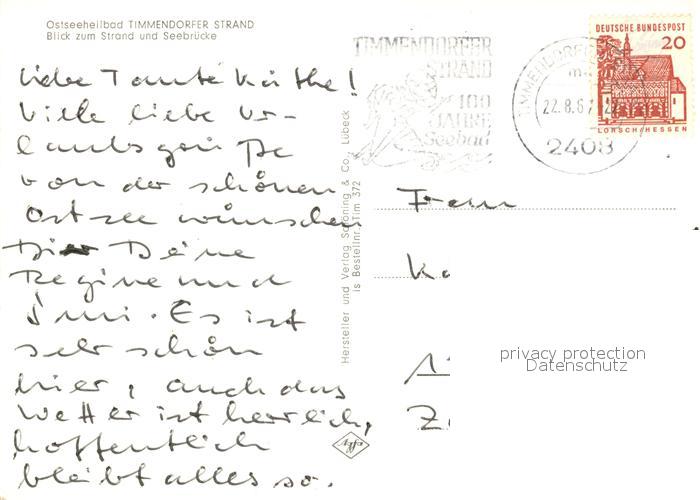 Ostseeheilbad TIMMENDORFER STRAND
Blick zum Strand und Seebrücke
Liebe Tante Käthe!
Viele liebe Ur-
laubsgrüße
von der schönen
Ostsee wünschen
Dir Deine
Regine und
Es ist
sehr schön
hier, auch das
Wetter ist herrlich,
hoffentlich
bleibt alles so.
Hersteller und Verlag Schöning & Co., Lübeck
is Bestellnr. Tim 372
Agfa
TIMMENDORFER
STRAND
100
JAHRE
Seebad
TIMMENDORFER
22.8.6
2408
DEUTSCHE BUNDESPOST
20
LORSCH/HESSEN
Frau
privacy protection
Datenschutz